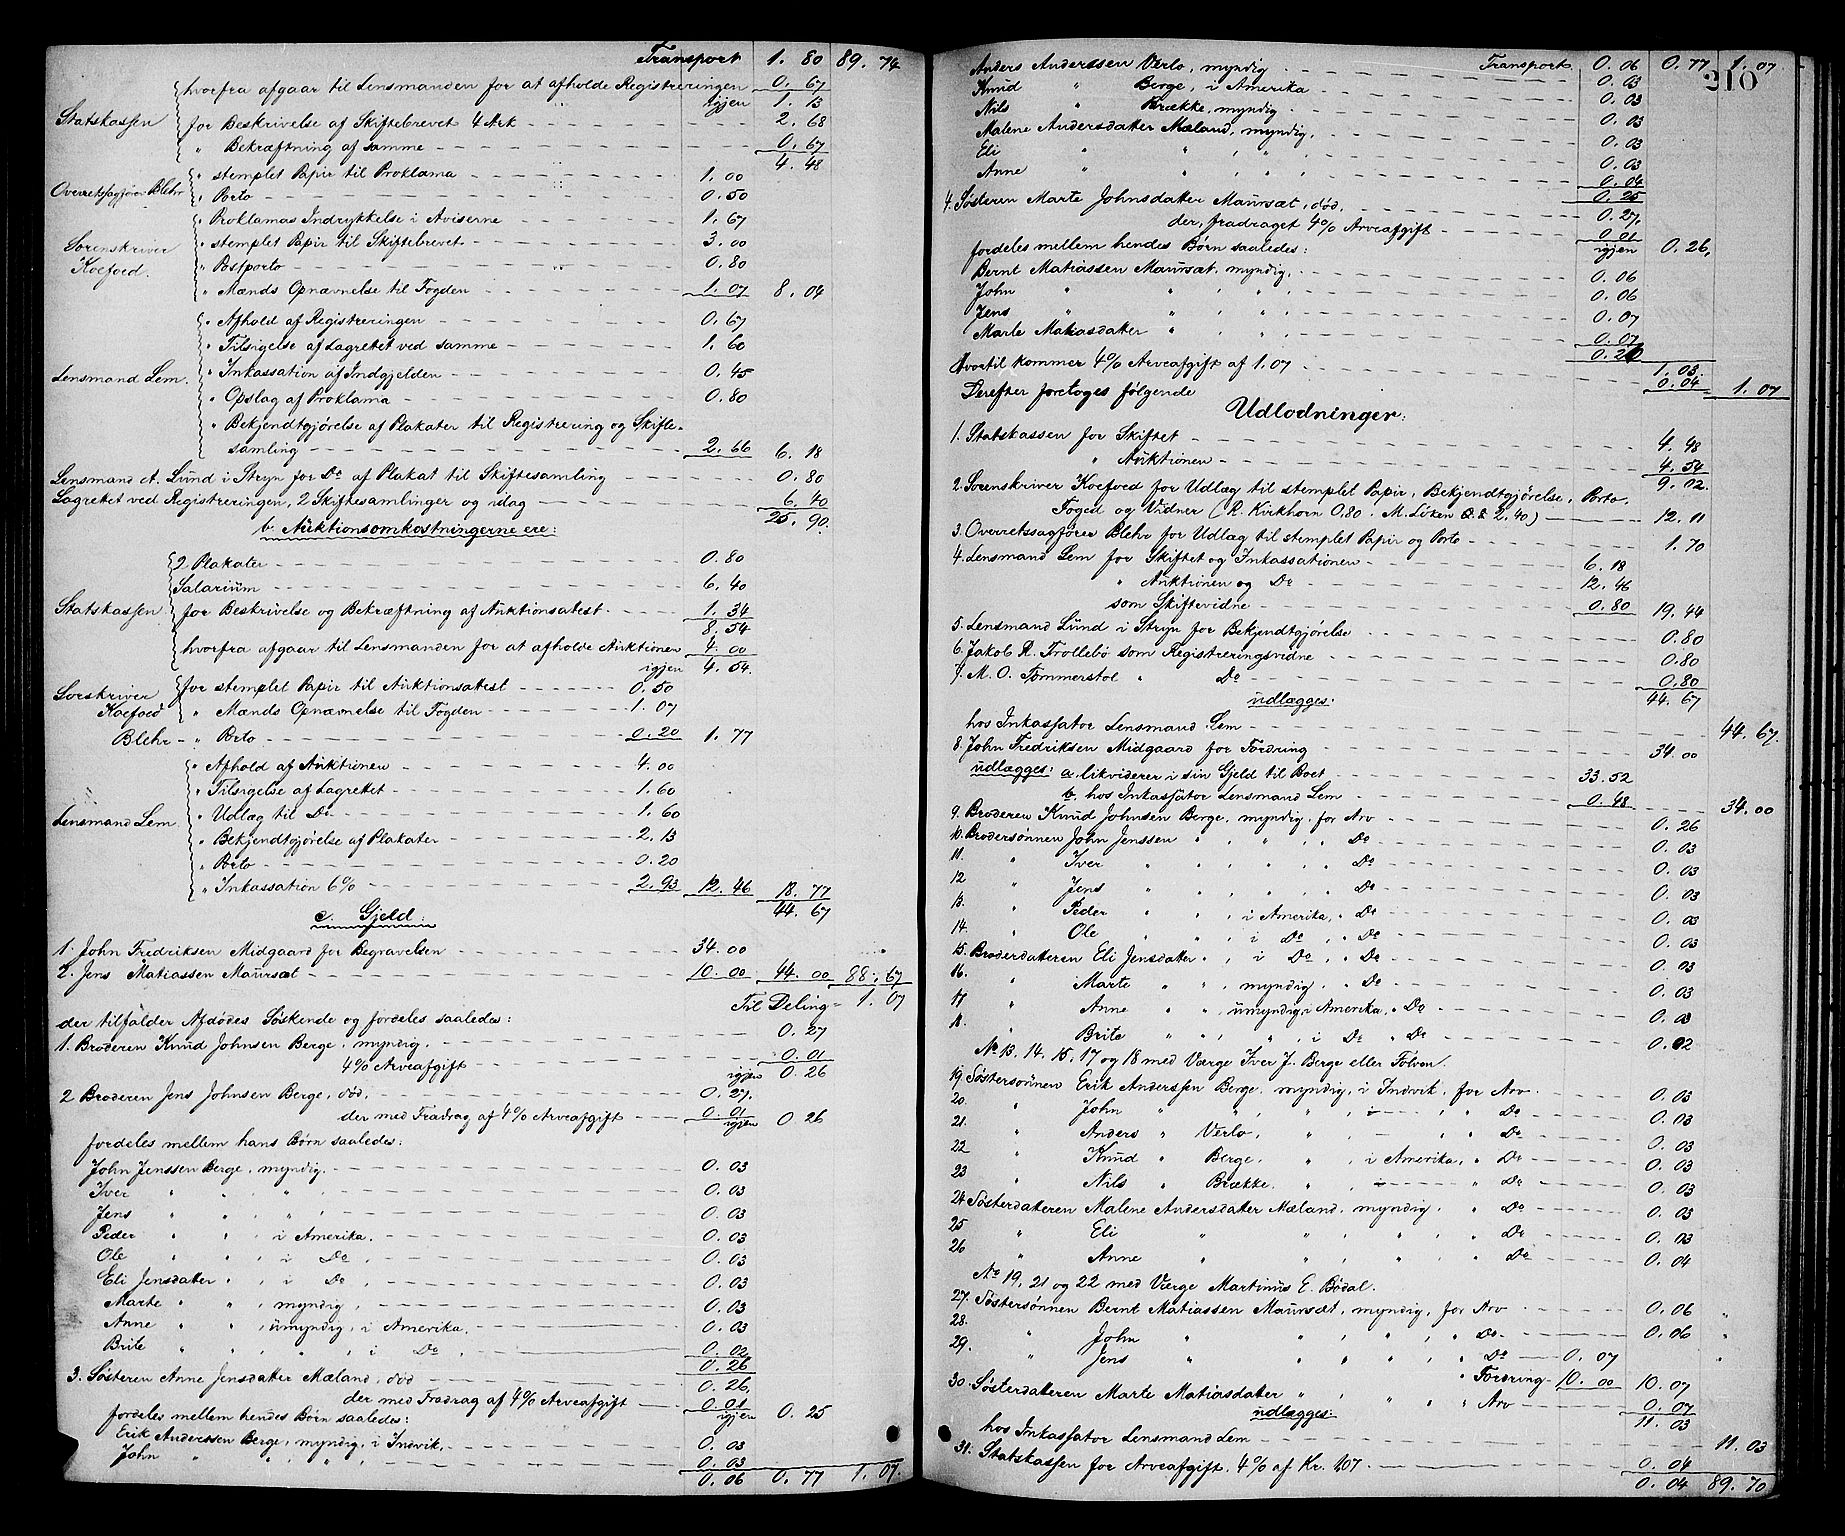 Transport 1. 80 89. 74
hvorfra afgaar til Lensmanden for at afholde Registreringen 0. 67
igjen 1. 13
Statskassen for Beskrivelse af Skiftebrevet 4 Ark 2. 68
" Bekræftning af samme 0. 67
4. 48
Overretssagfører Blehr " stemplet Papir til Proklama 1. 00
" Porto 0. 50
" Proklamas Indrykkelse i Aviserne 1. 67
Sorenskriver Koefoed. " stemplet Papir til Skiftebrevet 3. 00
" Postporto 0. 80
" Mænds Opnævnelse til Fogden 1. 07 8. 04
" Afhold af Registreringen 0. 67
" Tilsigelse af Lagrettet ved samme 1. 60
Lensmand Lem. " Inkassation af Indgjelden 0. 45
" Opslag af Proklama 0. 80
" Bekjendtgjørelse af Plakater til Registrering og Skifte-
samling 2. 66 6. 18
Lensmand A. Lund i Stryn for Do af Plakat til Skiftesamling 0. 80
Lagrettet ved Registreringen, 2 Skiftesamlinger og idag 6. 40
25. 90.
b. Auktionsomkostningerne ere:
2 Plakater 0. 80
Salarium 6. 40
Statskassen for Beskrivelse og Bekræftning af Auktionsatest 1. 34
8. 54
hvorfra afgaar til Lensmanden for at afholde Auktionen 4. 00
igjen 4. 54.
Sorskriver Koefoed for stemplet Papir til Auktionsatest 0. 50
" Mænds Opnævnelse til Fogden 1. 07
Blehr - " Porto 0. 20 1. 77
" Afhold af Auktionen 4. 00
" Tilsigelse af Lagrettet 1. 60
" Udlæg til Do 1. 60
Lensmand Lem " Bekjendtgjørelse af Plakater 2. 13
" Porto 0. 20
" Inkassation 6% 2. 93 12. 46 18. 77
44. 67
c. Gjeld:
1. John Fredriksen Midgaard for Begravelsen 34. 00
2. Jens Matiassen Maursæt 10. 00 44. 00 88. 67
Til Deling = 1. 07
der tilfalder Afdødes Søskende og fordeles saaledes:
1. Broderen Knud Johnsen Berge, myndig. 0. 27
4% Arveafgift 0. 01
igjen 0. 26
2 Broderen Jens Johnsen Berge, død, 0. 27,
der med Fradrag af 4% Arveafgift 0. 01
igjen 0 26
fordeles mellem hans Børn saaledes:
John Jenssen Berge, myndig. 0. 03
Iver " " , " , 0. 03
Jens " " , " , 0. 03
Peder " " , i Amerika. 0. 03
Ole " " , i Do , 0. 03
Eli Jensdatter " , i Do , 0. 03
Marte " " , myndig , 0. 03
Anne " " , umyndig, i Amerika, 0. 03
Brite " " , " , i Do , 0. 02
0. 26
3. Søsteren Anne Jensdatter Mæland, død 0. 26,
der med Fradrag af 4% Arveafgift 0. 01
igjen 0. 25
fordeles mellem hendes Børn saaledes:
Erik Anderssen Berge, myndig, i Indvik, 0. 03
John " " , " , " , 0. 03
0. 06 0. 77 1. 07.
210
Transport 0. 06 0. 77 1. 07
Anders Anderssen Verlo, myndig 0. 03
Knud " Berge, i Amerika 0. 03
Nils " Brække, myndig 0. 03
Malene Andersdatter Mæland, myndig, 0. 03
Eli " " , " , 0. 03
Anne " " , " , 0. 04
0. 25
4. Søsteren Marte Johnsdatter Maursæt, død, 0. 27,
der, fradraget 4% Arveafgift 0. 01
igjen 0. 26,
fordeles mellem hendes Børn saaledes:
Bernt Matiassen Maursæt, myndig, 0. 06
John " " , " , 0. 06
Jens " " , " , 0. 07
Marte Matiasdatter " , " , 0. 07
0. 26
1. 03.
Hvortil kommer 4% Arveafgift af 1. 07 0. 04 1. 07
Derefter foretoges følgende
Udlodninger:
1. Statskassen for Skiftet 4. 48
" Auktionen 4. 54
9. 02.
2. Sorenskriver Koefoed for Udlæg til stemplet Papir, Bekjendtgjørelse, Porto,
Foged og Vidner (R. Kirkhorn 0.80. M. Løken 2.40) 12. 11
3. Overretssagfører Blehr for Udlæg til stemplet Papir og Porto 1. 70
4. Lensmand Lem for Skiftet og Inkassationen 6. 18
" Auktionen og Do 12. 46
som Skiftevidne 0. 80 19. 44
5. Lensmand Lund i Stryn for Bekjendtgjørelse 0. 80
6. Jakob R. Trollebö som Registreringsvidne 0. 80
7. M. O. Tømmerstol " Do 0. 80
44. 67
udlægges:
hos Inkassator Lensmand Lem 44. 67.
8. John Fredriksen Midgaard for Fordring 34. 00
udlægges: a. likviderer i sin Gjeld til Boet 33. 52
b. hos Inkassator Lensmand Lem 0. 48 34. 00
9. Broderen Knud Johnsen Berge, myndig, for Arv 0. 26
10. Brodersønnen John Jenssen " , " , " Do 0. 03
11. " Iver " " , " , " Do 0. 03
12 " Jens " " , " , " Do 0. 03
13. " Peder " " , i Amerika, " Do 0. 03
14. " Ole " " , i Do , " Do 0. 03
15. Broderdatteren Eli Jensdatter " , i Do , " Do 0. 03
16. " Marte " " , myndig , " Do 0. 03
17 " Anne " " , umyndig, i Amerika, " Do 0. 03
18. " Brite " " , " , i Do " Do 0. 02
No 13, 14, 15, 17 og 18 med Værge Iver J. Berge eller Folven.
19. Søstersønnen Erik Anderssen Berge, myndig, i Indvik, for Arv 0. 03
20. " John " " , " , i — , " Do 0. 03
21. " Anders " Verlo, " , — , " Do 0. 03
22 " Knud " Berge, " , i Amerika, " Do 0. 03
23 " Nils " Brække, " , — " Do 0. 03
24 Søsterdatteren Malene Andersdatter Mæland, myndig, " Do 0. 03
25 " Eli " " , " , " Do 0. 03
26 " Anne " " , " , " Do 0. 04
No 19, 21 og 22 med Værge Martinus E. Bødal.
27. Søstersønnen Bernt Matiassen Maursæt, myndig, for Arv 0. 06
28. " John " " , " , " Do 0. 06
29. " Jens " " , " , " Do 0. 07
" Fordring 10. 00 10. 07
30. Søsterdatteren Marte Matiasdatter " , " , " Arv 0. 07
11. 03
udlægges:
hos Inkassator Lensmand Lem 11. 03
31. Statskassen for Arveafgift, 4% af Kr. 1.07 0. 04
0. 04 89. 70